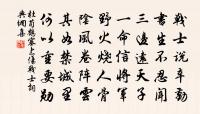 戰士說辛勤
書生不忍聞
三邊遠天子
一命信將軍
野火燒人骨
陰風卷陣雲
其如禁城裏
何以重要勛
杜荀鶴塞上傷戰士詞